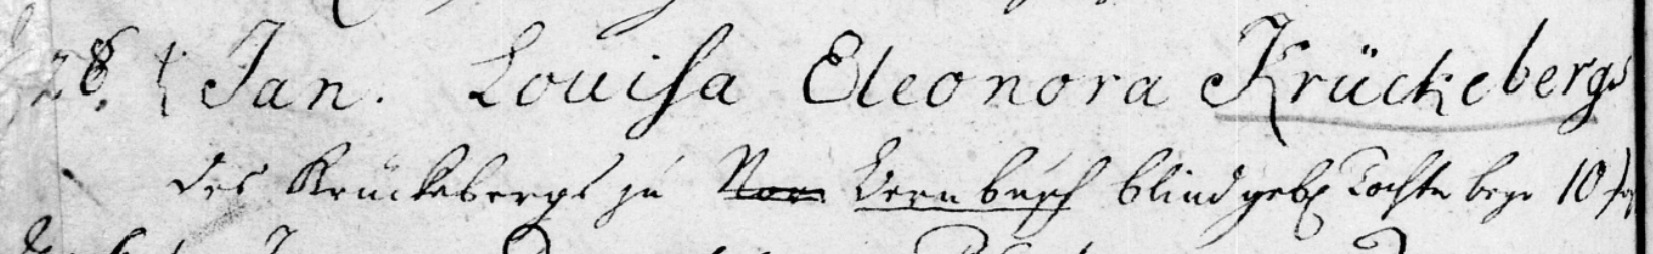 28. t Jan. Louisa Eleonora Krückebergs
des Krückebergs zu Vornbusch blind geb. Tochter begr 10